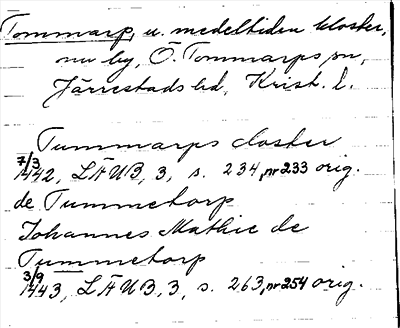 Tommarp, u. medeltiden kloster,
nu by, Ö. Tommarps sn,
Järrestads hd, Krist. l.
Tummarps closter
7/3 1442, LÄUB, 3, s. 234, nr 233 orig.
de Tummetorp
Johannes Mathie de
Tummetorp
3/9 1443, LÄUB, 3, s. 263, nr 254 orig.